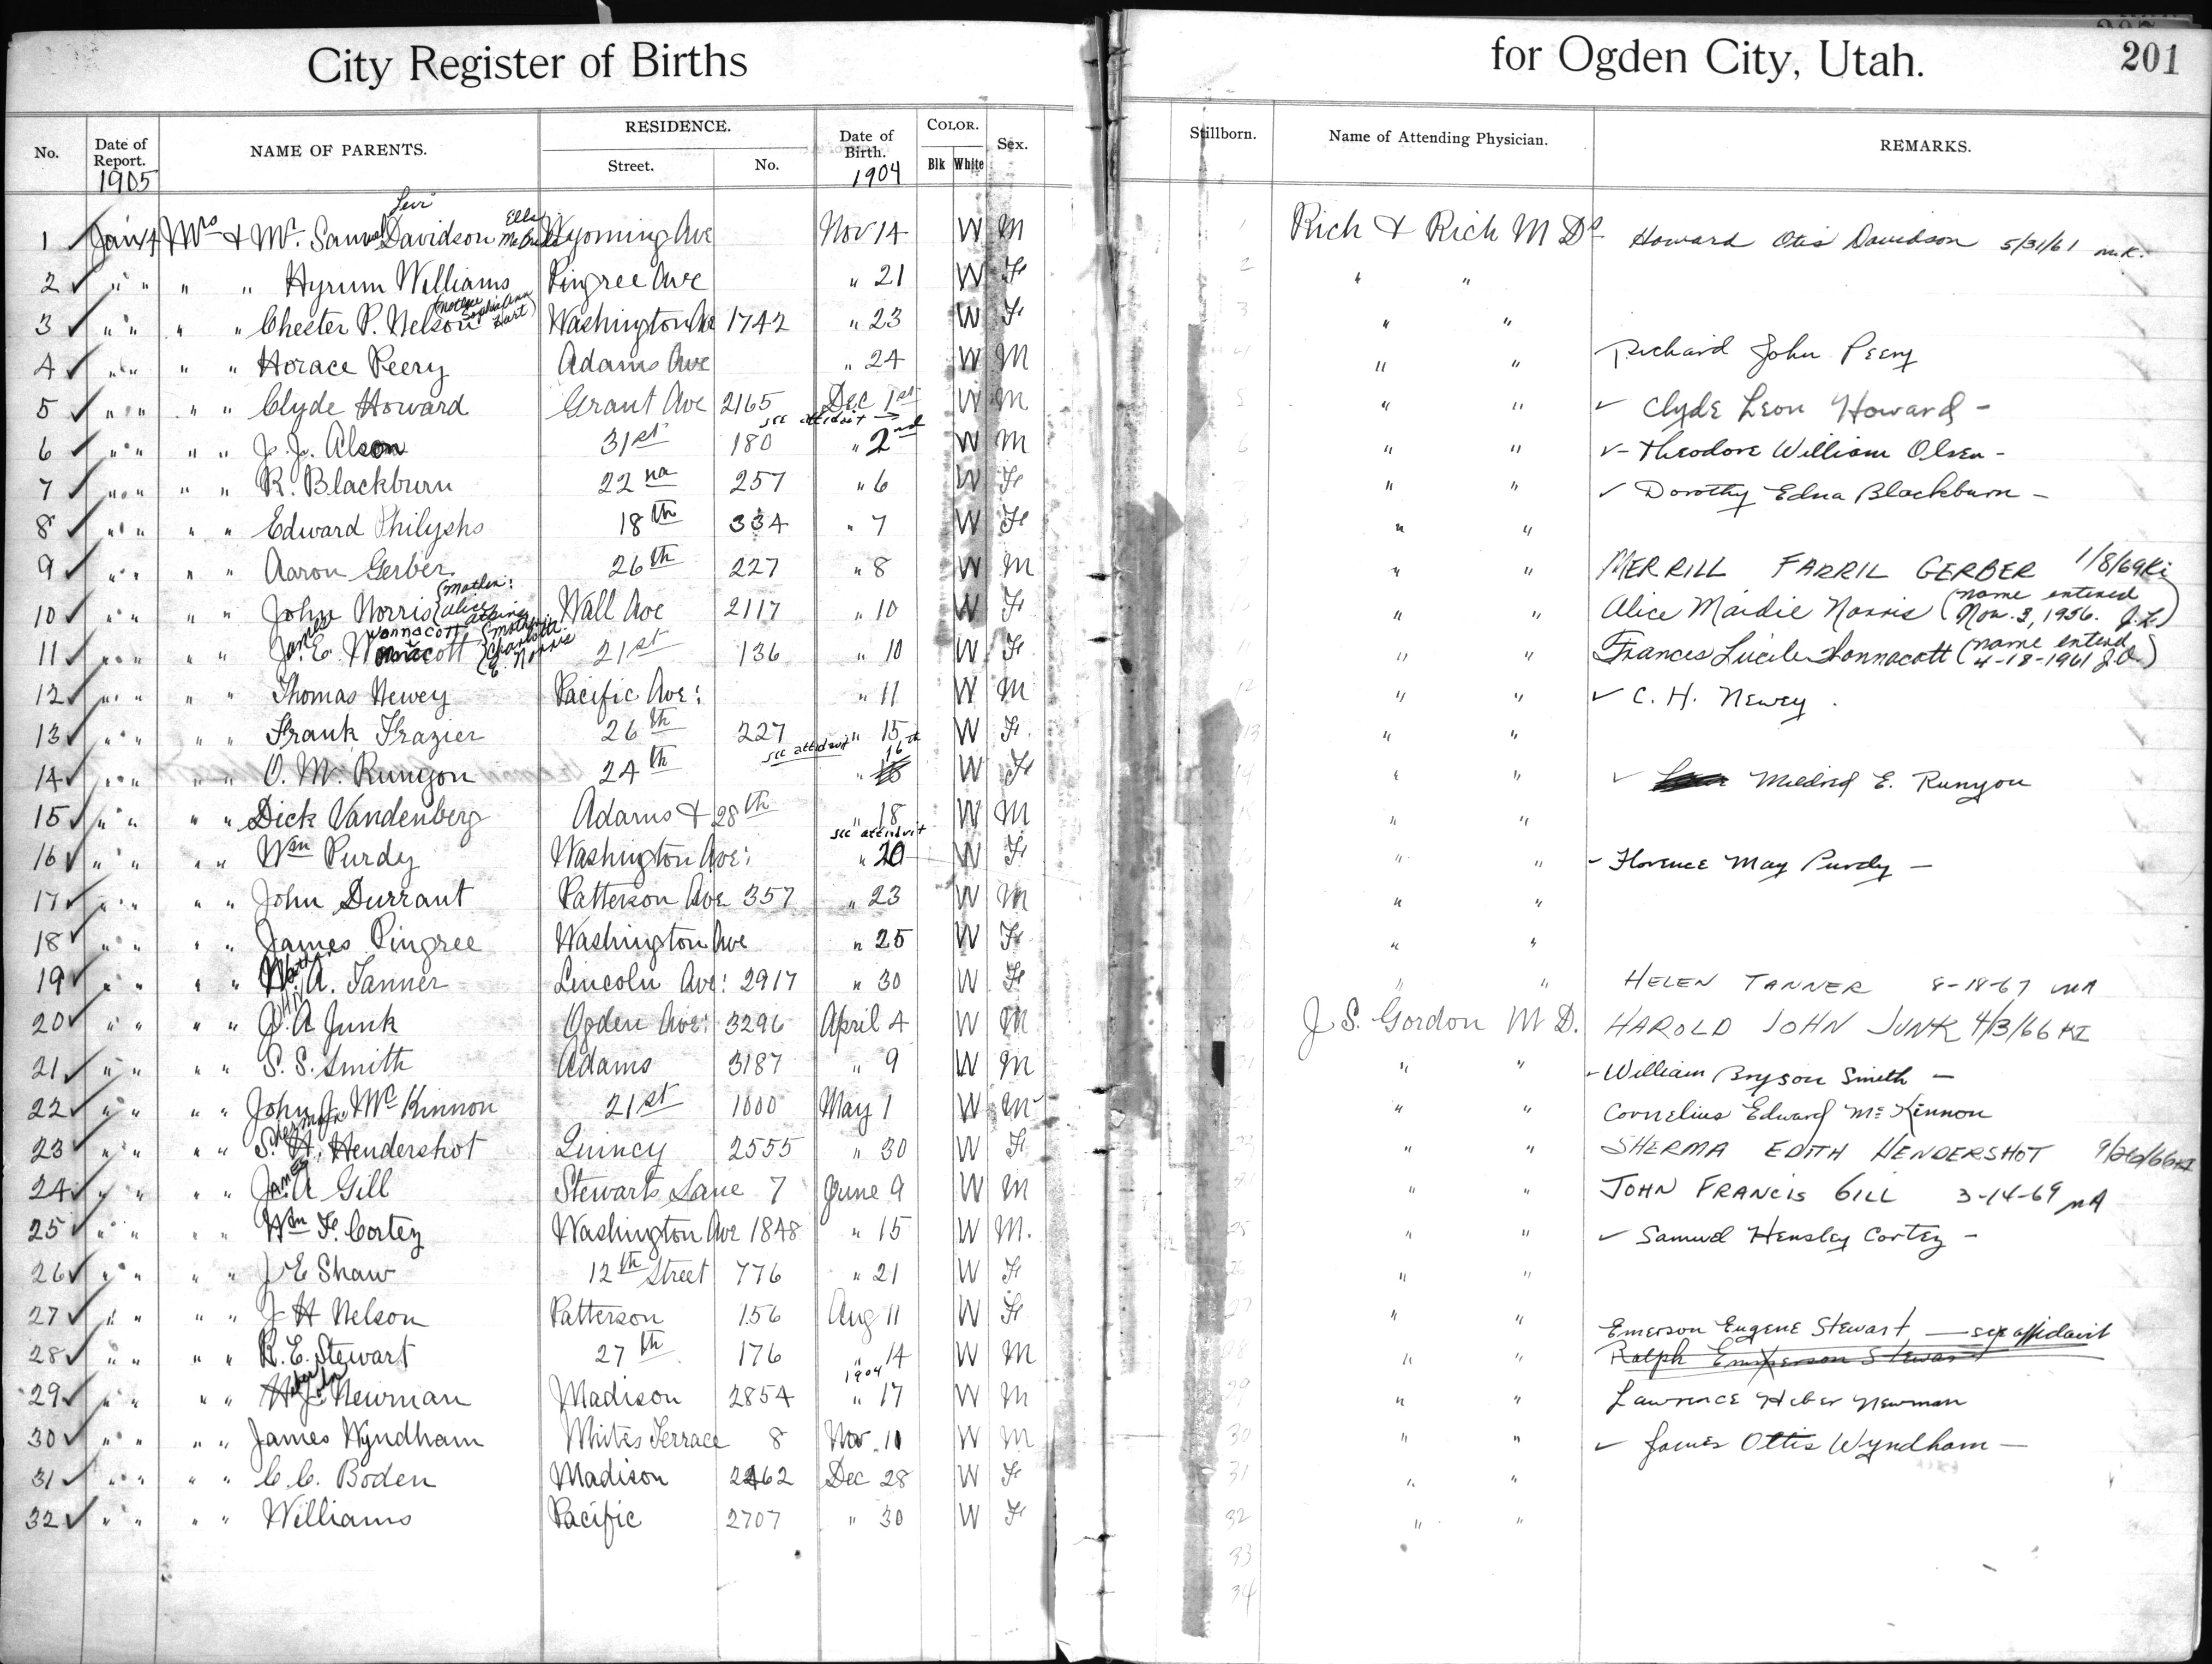 City Register of Births for Ogden City, Utah. 201
No. Date of Report. NAME OF PARENTS. RESIDENCE. Street. No. Date of Birth. COLOR. Blk White Sex. Stillborn. Name of Attending Physician. REMARKS.
1905 1904
Levi Ella
1 ✓ Jan 4 Mrs & Mr. Samuel Davidson McBride Wyoming Ave Nov 14 W M Rich & Rich M Ds Howard Otis Davidson 5/31/61 m.k.
2 ✓ " " " " Hyrum Williams Pingree Ave " 21 W F " "
3 ✓ " " " " Chester P. Nelson (Mother Sophia Ann Hart) Washington Ave 1742 " 23 W F " "
4 ✓ " " " " Horace Peery Adams Ave " 24 W M " " Richard John Peery
5 ✓ " " " " Clyde Howard Grant Ave 2165 Dec 1st W M " " ✓ Clyde Leon Howard -
see affidavit →
6 ✓ " " " " J. J. Alson 31st 180 " 2nd W M " " ✓ - Theodore William Olsen -
7 ✓ " " " " R. Blackburn 22nd 257 " 6 W F " " ✓ Dorothy Edna Blackburn -
8 ✓ " " " " Edward Philipshs 18th 334 " 7 W F " "
9 ✓ " " " " Aaron Gerber 26th 227 " 8 W M " " MERRILL FARRIL GERBER 1/8/69 Ki
10 ✓ " " " " John Norris (mother: Alice) Wall Ave 2117 " 10 W F " " Alice Maidie Norris (name entered Nov. 3, 1956. J.L.)
11 ✓ " " " " James E. Wonnacott (mother: Charlotte E. Norris) 21st 136 " 10 W F " " Frances Lucile Wonnacott (name entered 4-18-1961 J.O.)
12 ✓ " " " " Thomas Newey Pacific Ave: " 11 W M " " ✓ C. H. Newey.
13 ✓ " " " " Frank Frazier 26th 227 " 15 W F " "
see affidavit 16th
14 ✓ " " " " O. M. Runyon 24th " 15 W F " " ✓ Mildred E. Runyon
15 ✓ " " " " Dick Vandenberg Adams & 28th " 18 W M " "
see affidavit
16 ✓ " " " " Wm Purdy Washington Ave: " 20 W F " " - Florence May Purdy -
17 ✓ " " " " John Durrant Patterson Ave 357 " 23 W M " "
18 ✓ " " " " James Pingree Washington Ave " 25 W F " "
19 ✓ " " " " Nathan A. Tanner Lincoln Ave: 2917 " 30 W F " " HELEN TANNER 8-18-67 MA
20 ✓ " " " " John A Junk Ogden Ave: 3296 April 4 W M J. S. Gordon M D. HAROLD JOHN JUNK 4/3/66 KI
21 ✓ " " " " S. S. Smith Adams 3187 " 9 W M " " - William Bryson Smith -
22 ✓ " " " " John J. McKinnon 21st 1000 May 1 W M " " Cornelius Edward McKinnon
23 ✓ " " " " Sherman H. Hendershot Quincy 2555 " 30 W F " " SHERMA EDITH HENDERSHOT 9/26/66 KI
24 ✓ " " " " James A Gill Stewarts Lane 7 June 9 W M " " JOHN FRANCIS GILL 3-14-69 MA
25 ✓ " " " " Wm F. Cortez Washington Ave 1848 " 15 W M. " " ✓ Samuel Hensley Cortez -
26 ✓ " " " " J E Shaw 12th Street 776 " 21 W F " "
27 ✓ " " " " J H Nelson Patterson 156 Aug 11 W F " "
Emerson Eugene Stewart - see affidavit
28 ✓ " " " " R. E. Stewart 27th 176 " 14 W M " " Ralph Emmerson Stewart
1904
29 ✓ " " " " Heber John Newman Madison 2854 " 17 W M " " Lawrence Heber Newman
30 ✓ " " " " James Wyndham Whites Terrace 8 Nov. 10 W M " " ✓ James Ottis Wyndham -
31 ✓ " " " " C. C. Boden Madison 2262 Dec 28 W F " "
32 ✓ " " " " Williams Pacific 2707 " 30 W F " "
33
34